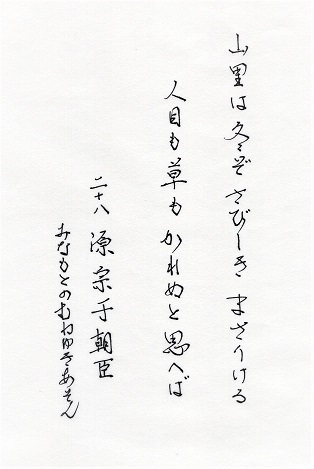 山里は冬ぞさびしきまさりける
人目も草もかれぬと思へば
二十八 源宗于朝臣
みなもとのむねゆきあそん